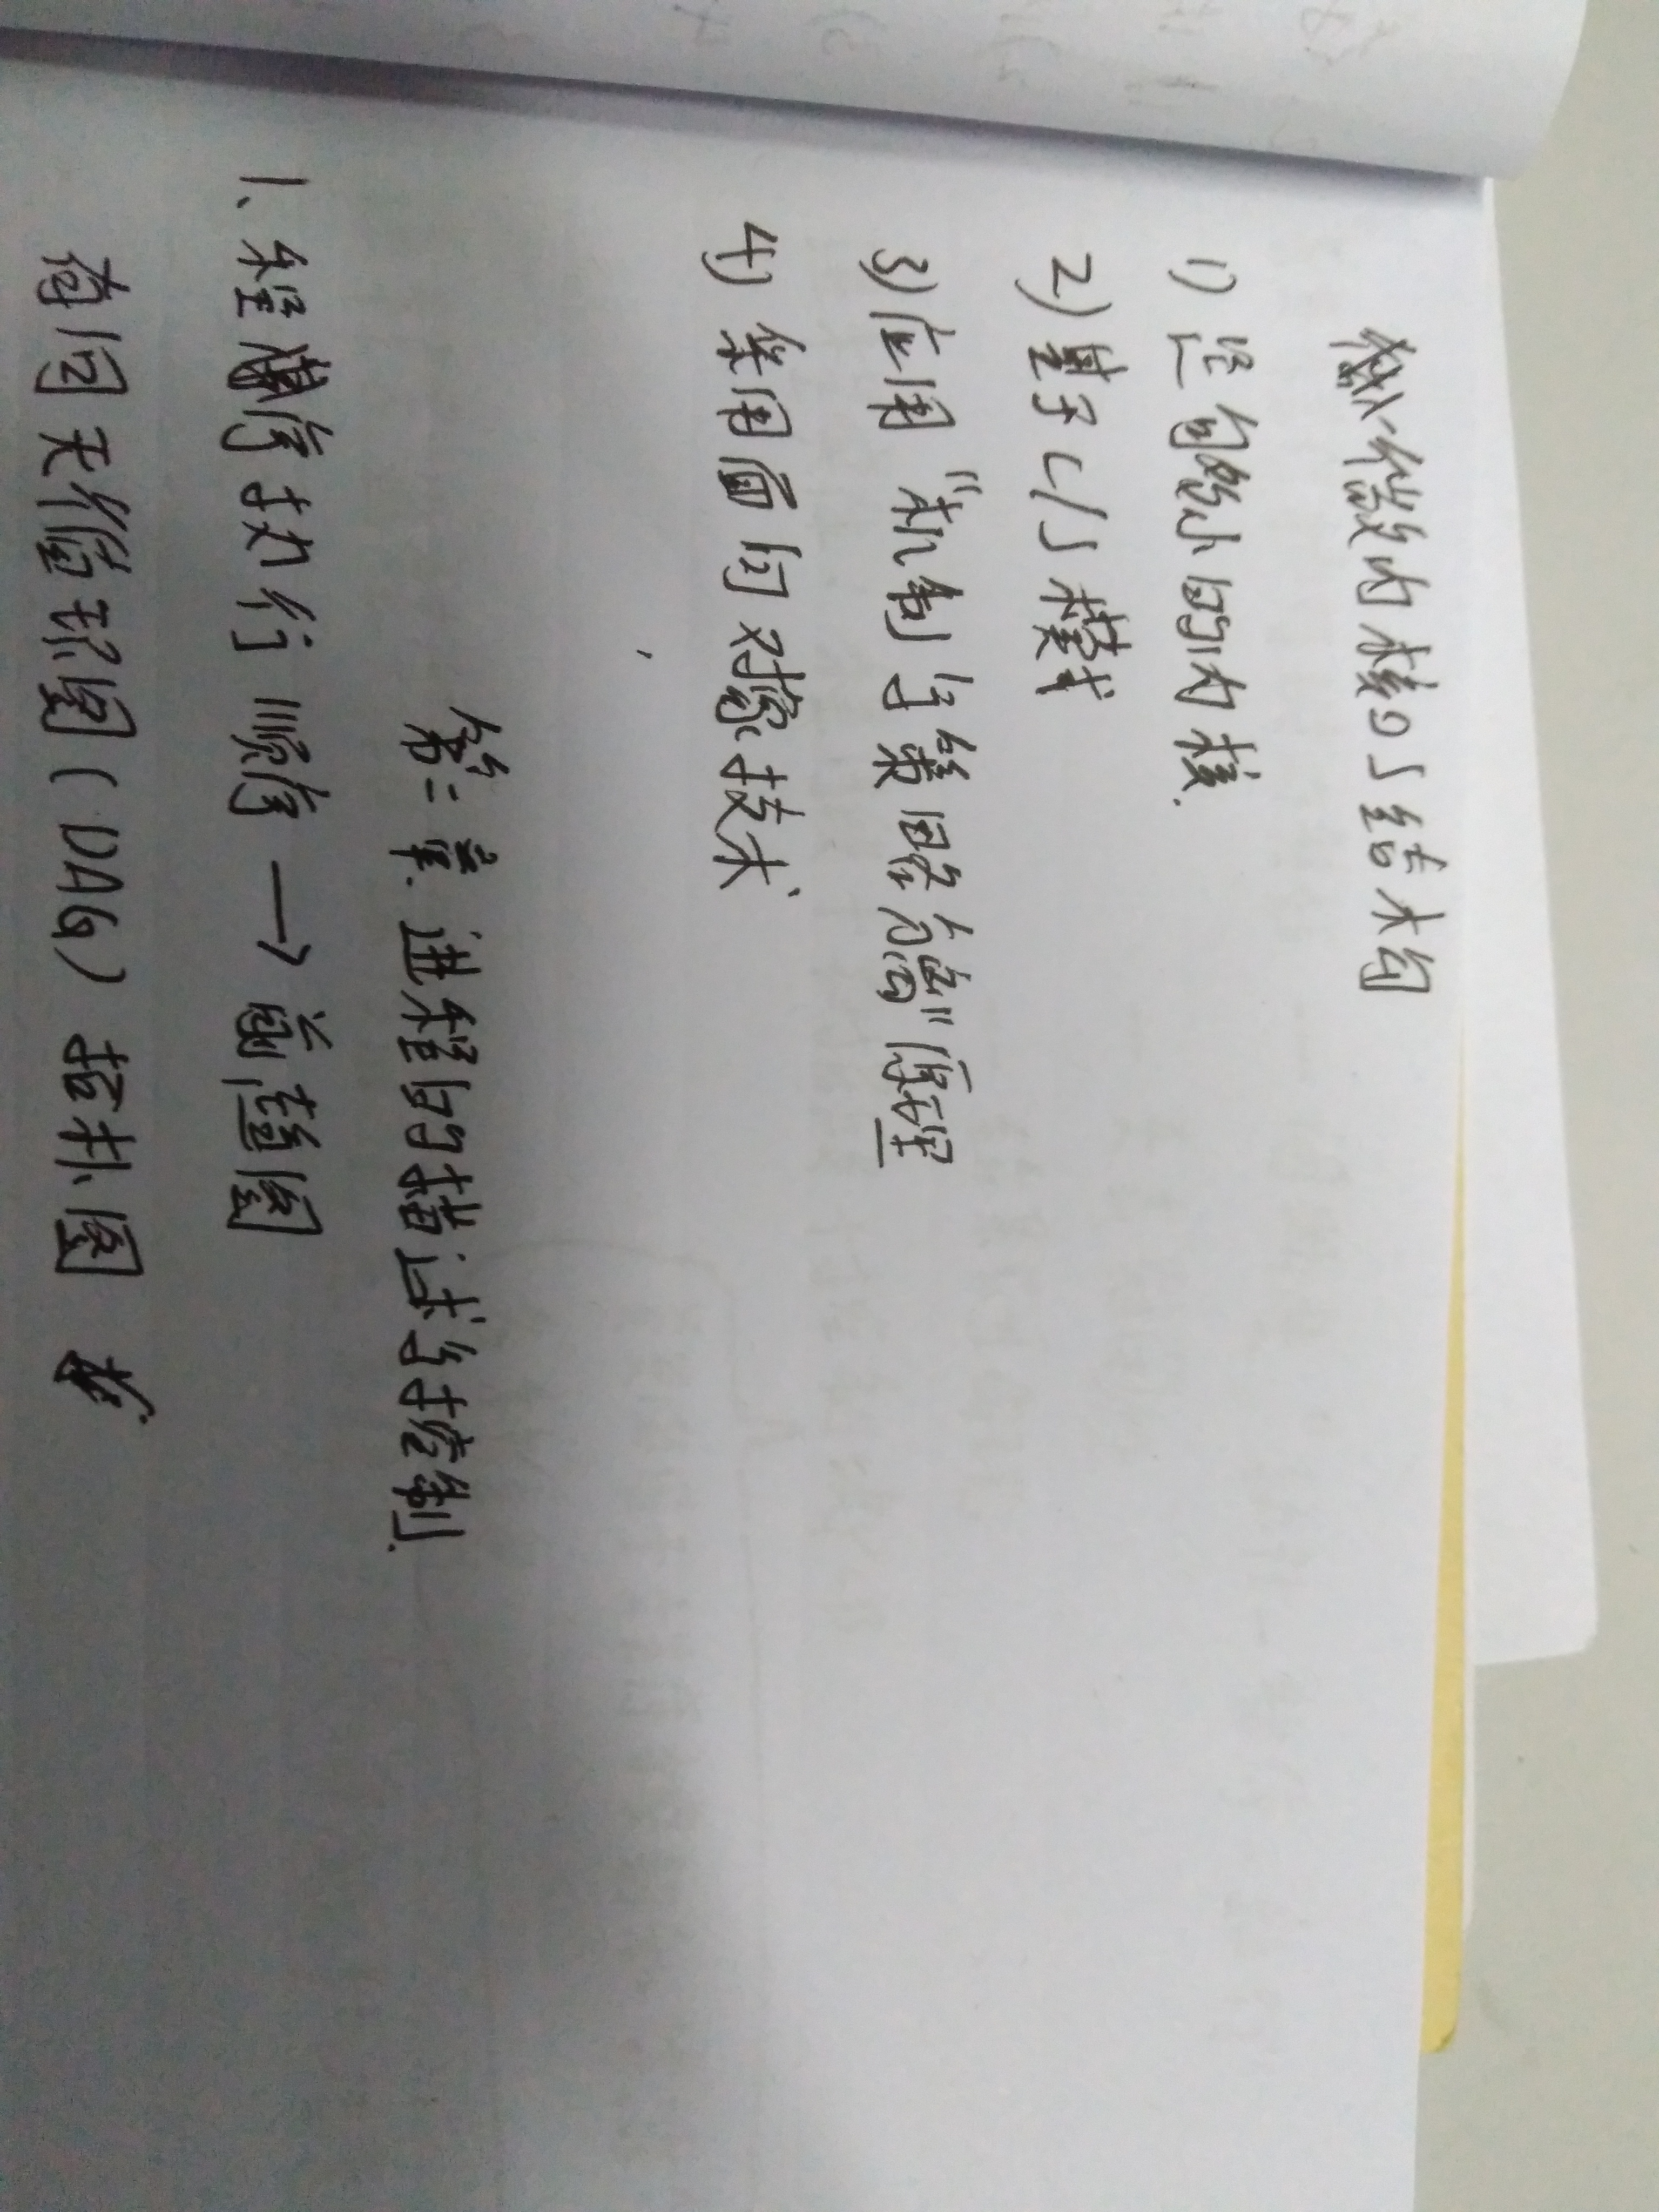 微内核OS结构
1) 足够小的内核.
2) 基于C/S模式
3) 应用“机制与策略分离”原理
4) 采用面向对象技术
第二章 进程的描述与控制.
1、程序执行顺序 → 前趋图
有向无循环图(DAG) 拓扑图